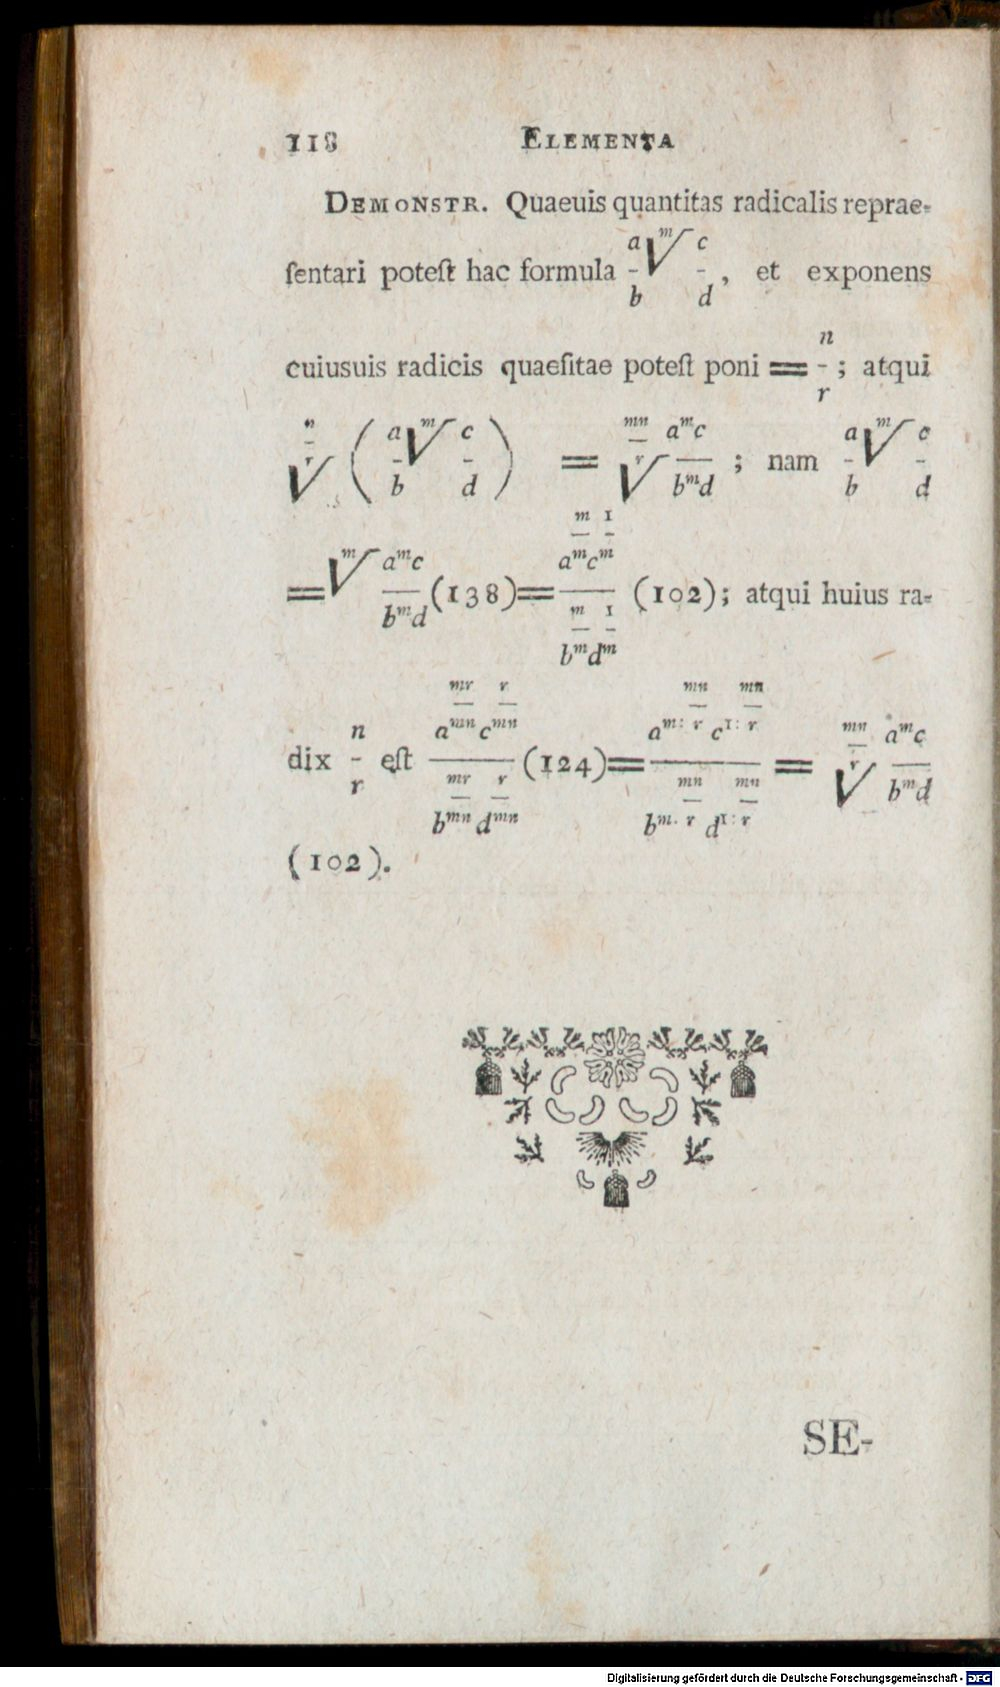 118 ELEMENTA
DEMONSTR. Quaeuis quantitas radicalis reprae-
ſentari poteſt hac formula $\frac{a}{b}\sqrt[m]{\frac{c}{d}}$, et exponens
cuiusuis radicis quaeſitae poteſt poni = $\frac{n}{r}$; atqui
$\sqrt[\frac{n}{r}]{\left(\frac{a}{b}\sqrt[m]{\frac{c}{d}}\right)} = \sqrt[\frac{mn}{r}]{\frac{a^m c}{b^m d}}$; nam $\frac{a}{b}\sqrt[m]{\frac{c}{d}}$
$= \sqrt[m]{\frac{a^m c}{b^m d}}$ (138) $= \frac{a^{\frac{m}{m}} c^{\frac{1}{m}}}{b^{\frac{m}{m}} d^{\frac{1}{m}}}$ (102); atqui huius ra-
dix $\frac{n}{r}$ eſt $\frac{a^{\frac{mr}{mn}} c^{\frac{r}{mn}}}{b^{\frac{mr}{mn}} d^{\frac{r}{mn}}}$ (124) $= \frac{a^{m:\frac{mn}{r}} c^{1:\frac{mn}{r}}}{b^{m:\frac{mn}{r}} d^{1:\frac{mn}{r}}} = \sqrt[\frac{mn}{r}]{\frac{a^m c}{b^m d}}$
(102).
SE-
Digitalisierung gefördert durch die Deutsche Forschungsgemeinschaft - DFG